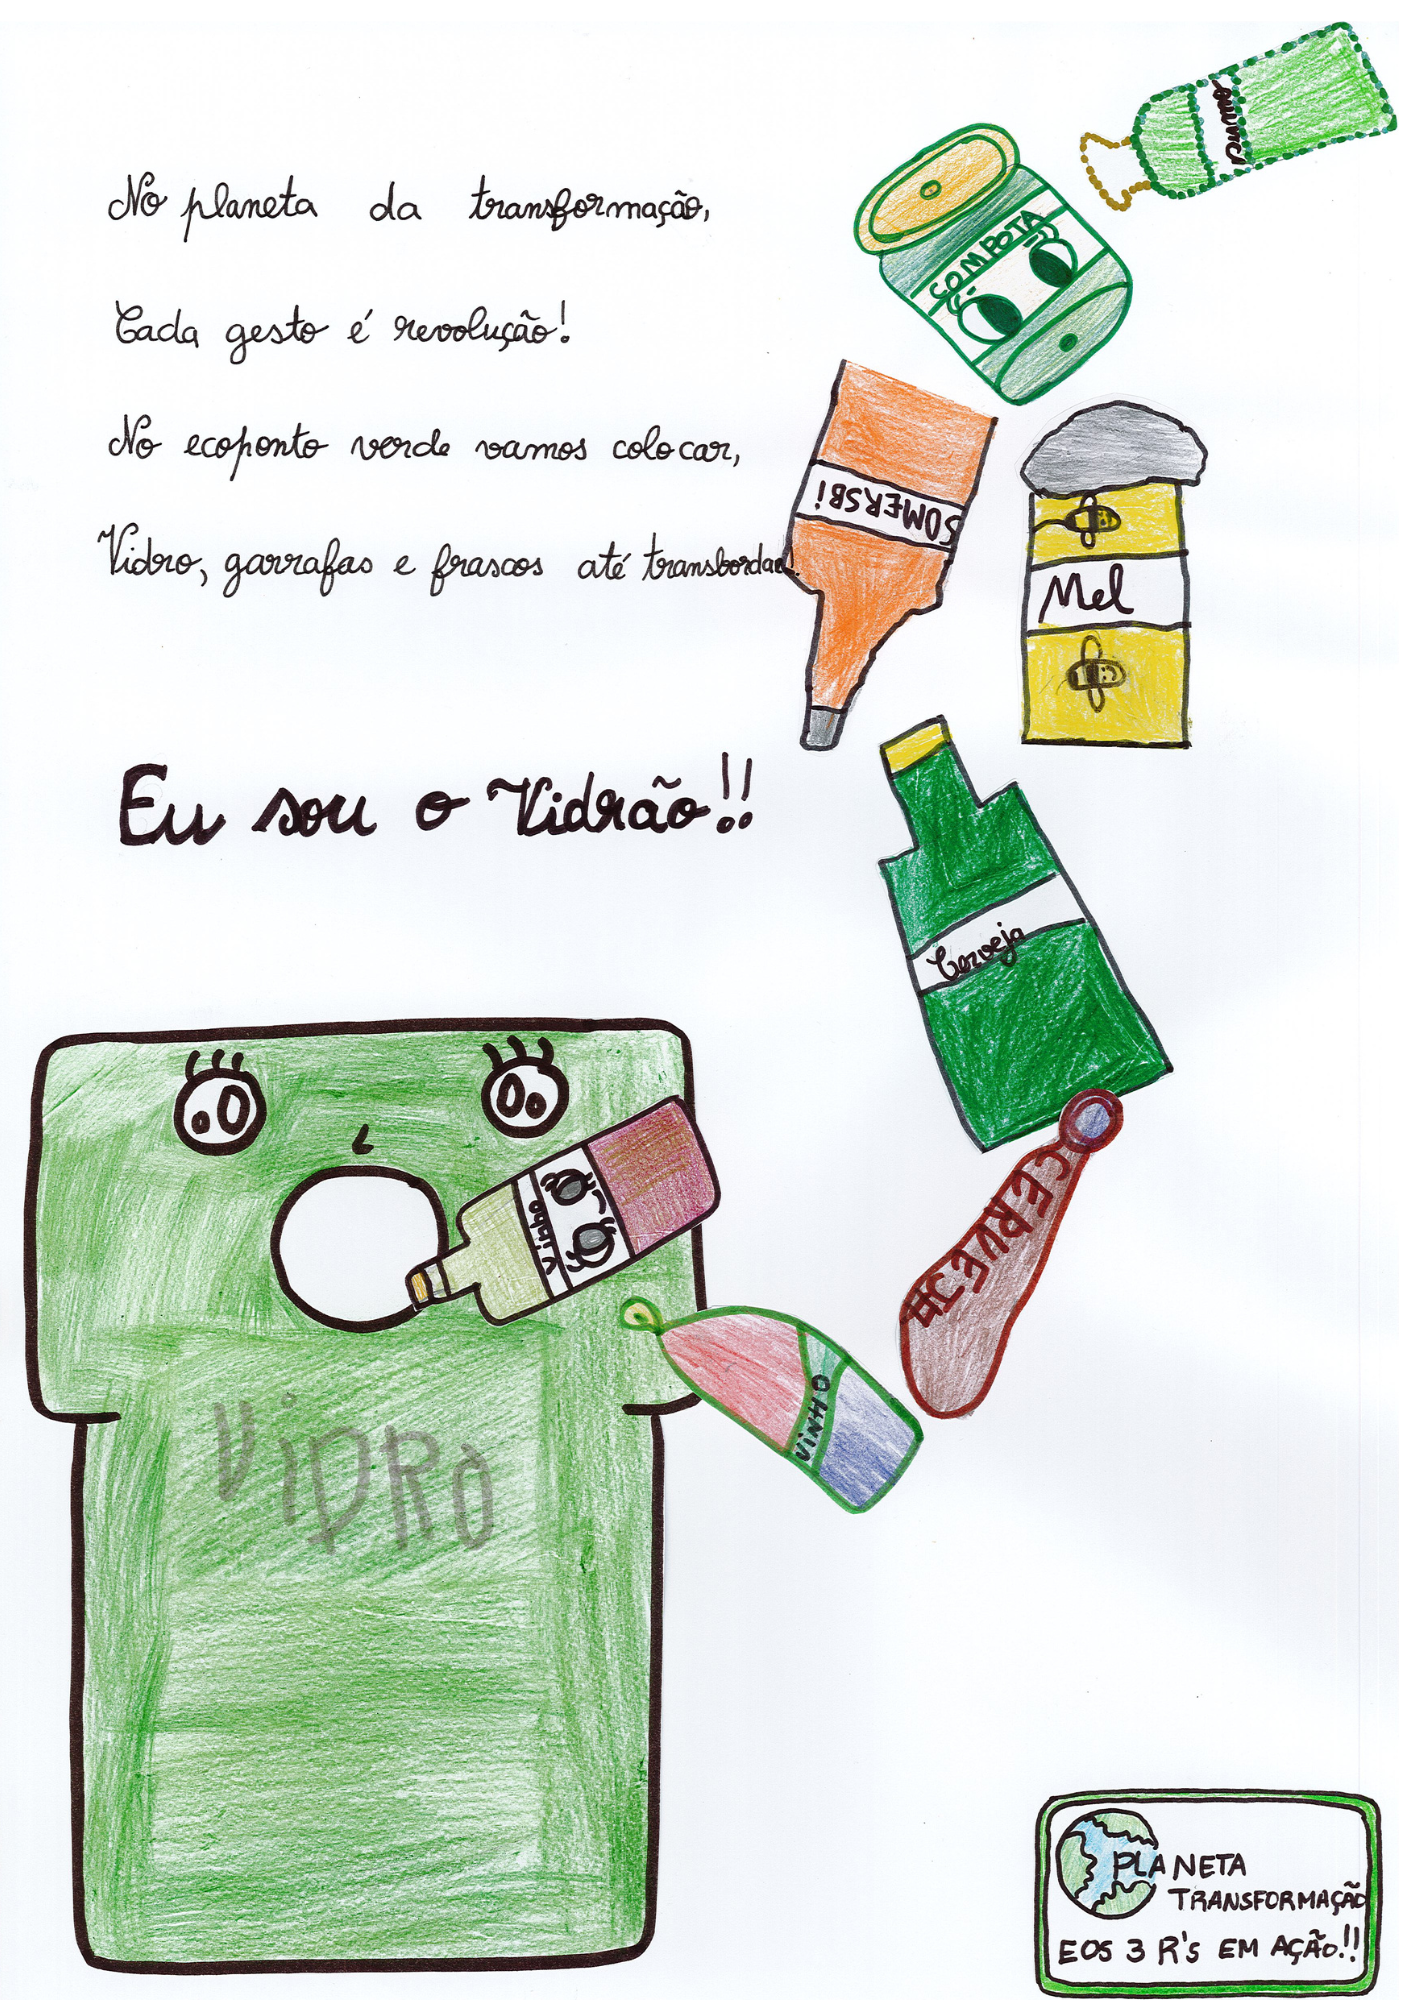 No planeta da transformação,
Cada gesto é revolução!
No ecoponto verde vamos colocar,
Vidro, garrafas e frascos até transbordar..
Eu sou o Vidrão!!
COMPOTA
SOMERSBI
Mel
Cerveja
CERVEJA
Vinho
VINHO
VIDRO
PLANETA
TRANSFORMAÇÃO
E OS 3 R'S EM AÇÃO!!